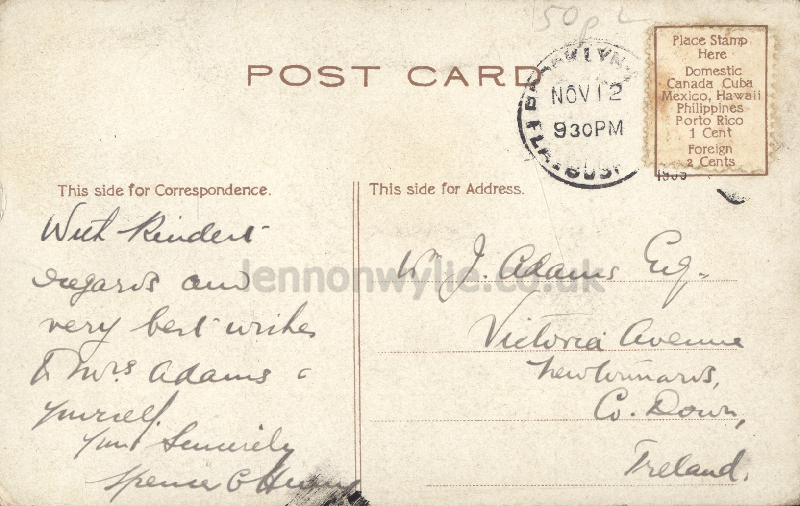 50p
POST CARD
BROOKLYN
NOV 12
930PM
FLATBUSH
1909
Place Stamp
Here
Domestic
Canada Cuba
Mexico, Hawaii
Philippines
Porto Rico
1 Cent
Foreign
2 Cents
This side for Correspondence.
With Kindest
regards and
very best wishes
to Mrs Adams &
yourself.
Yours Sincerely
Spencer
This side for Address.
Wm J. Adams Esq.
Victoria Avenue
Newtownards,
Co. Down,
Ireland.
lennonwylie.co.uk